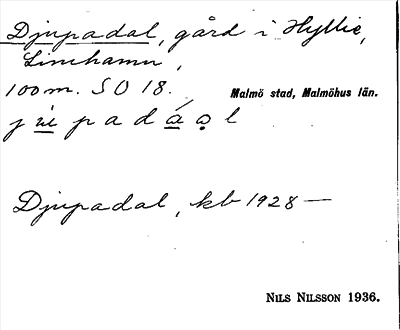 Djupadal, gård i Hyllie,
Limhamn,
100 m. SO 18. Malmö stad, Malmöhus län.
Djupadal, kb 1928 —
NILS NILSSON 1936.